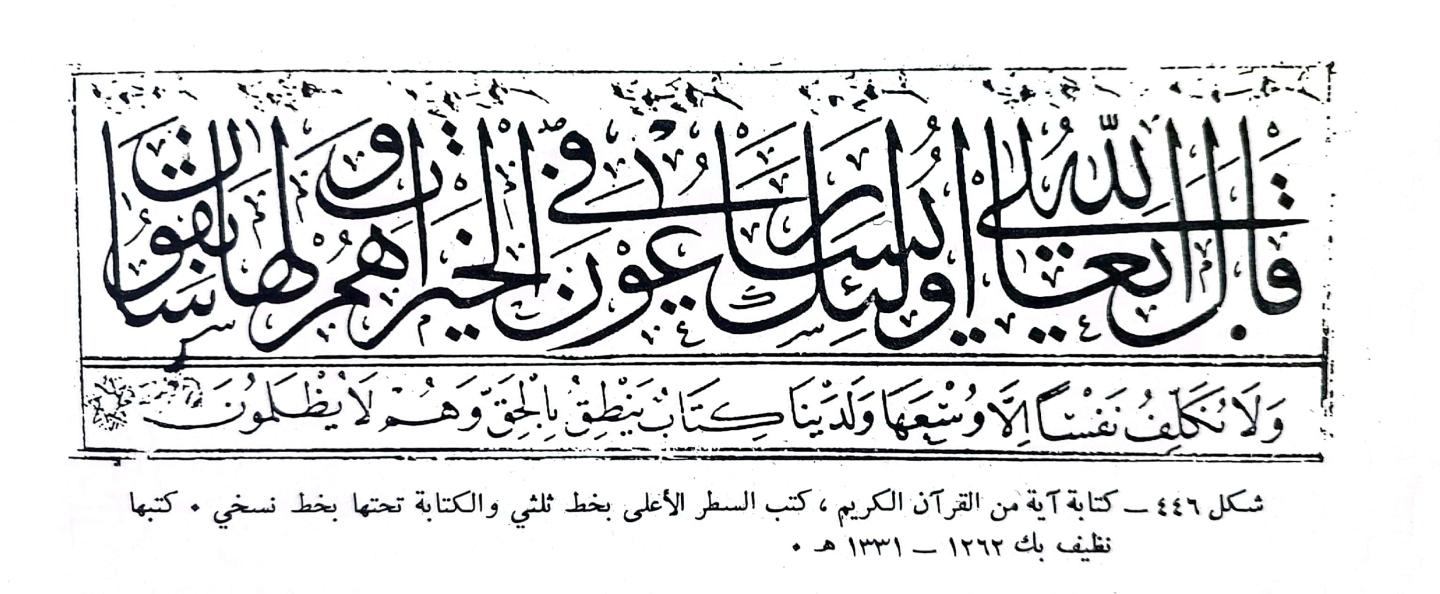 قَالَ اللّٰهُ تَعَالَى أُولَئِكَ يُسَارِعُونَ فِي الْخَيْرَاتِ وَهُمْ لَهَا سَابِقُونَ
وَلَا نُكَلِّفُ نَفْسًا إِلَّا وُسْعَهَا وَلَدَيْنَا كِتَابٌ يَنْطِقُ بِالْحَقِّ وَهُمْ لَا يُظْلَمُونَ
شكل ٤٤٦ ــ كتابة آية من القرآن الكريم ، كتب السطر الأعلى بخط ثلثي والكتابة تحتها بخط نسخي ٠ كتبها
نظيف بك ١٢٦٢ ــ ١٣٣١ هـ ٠